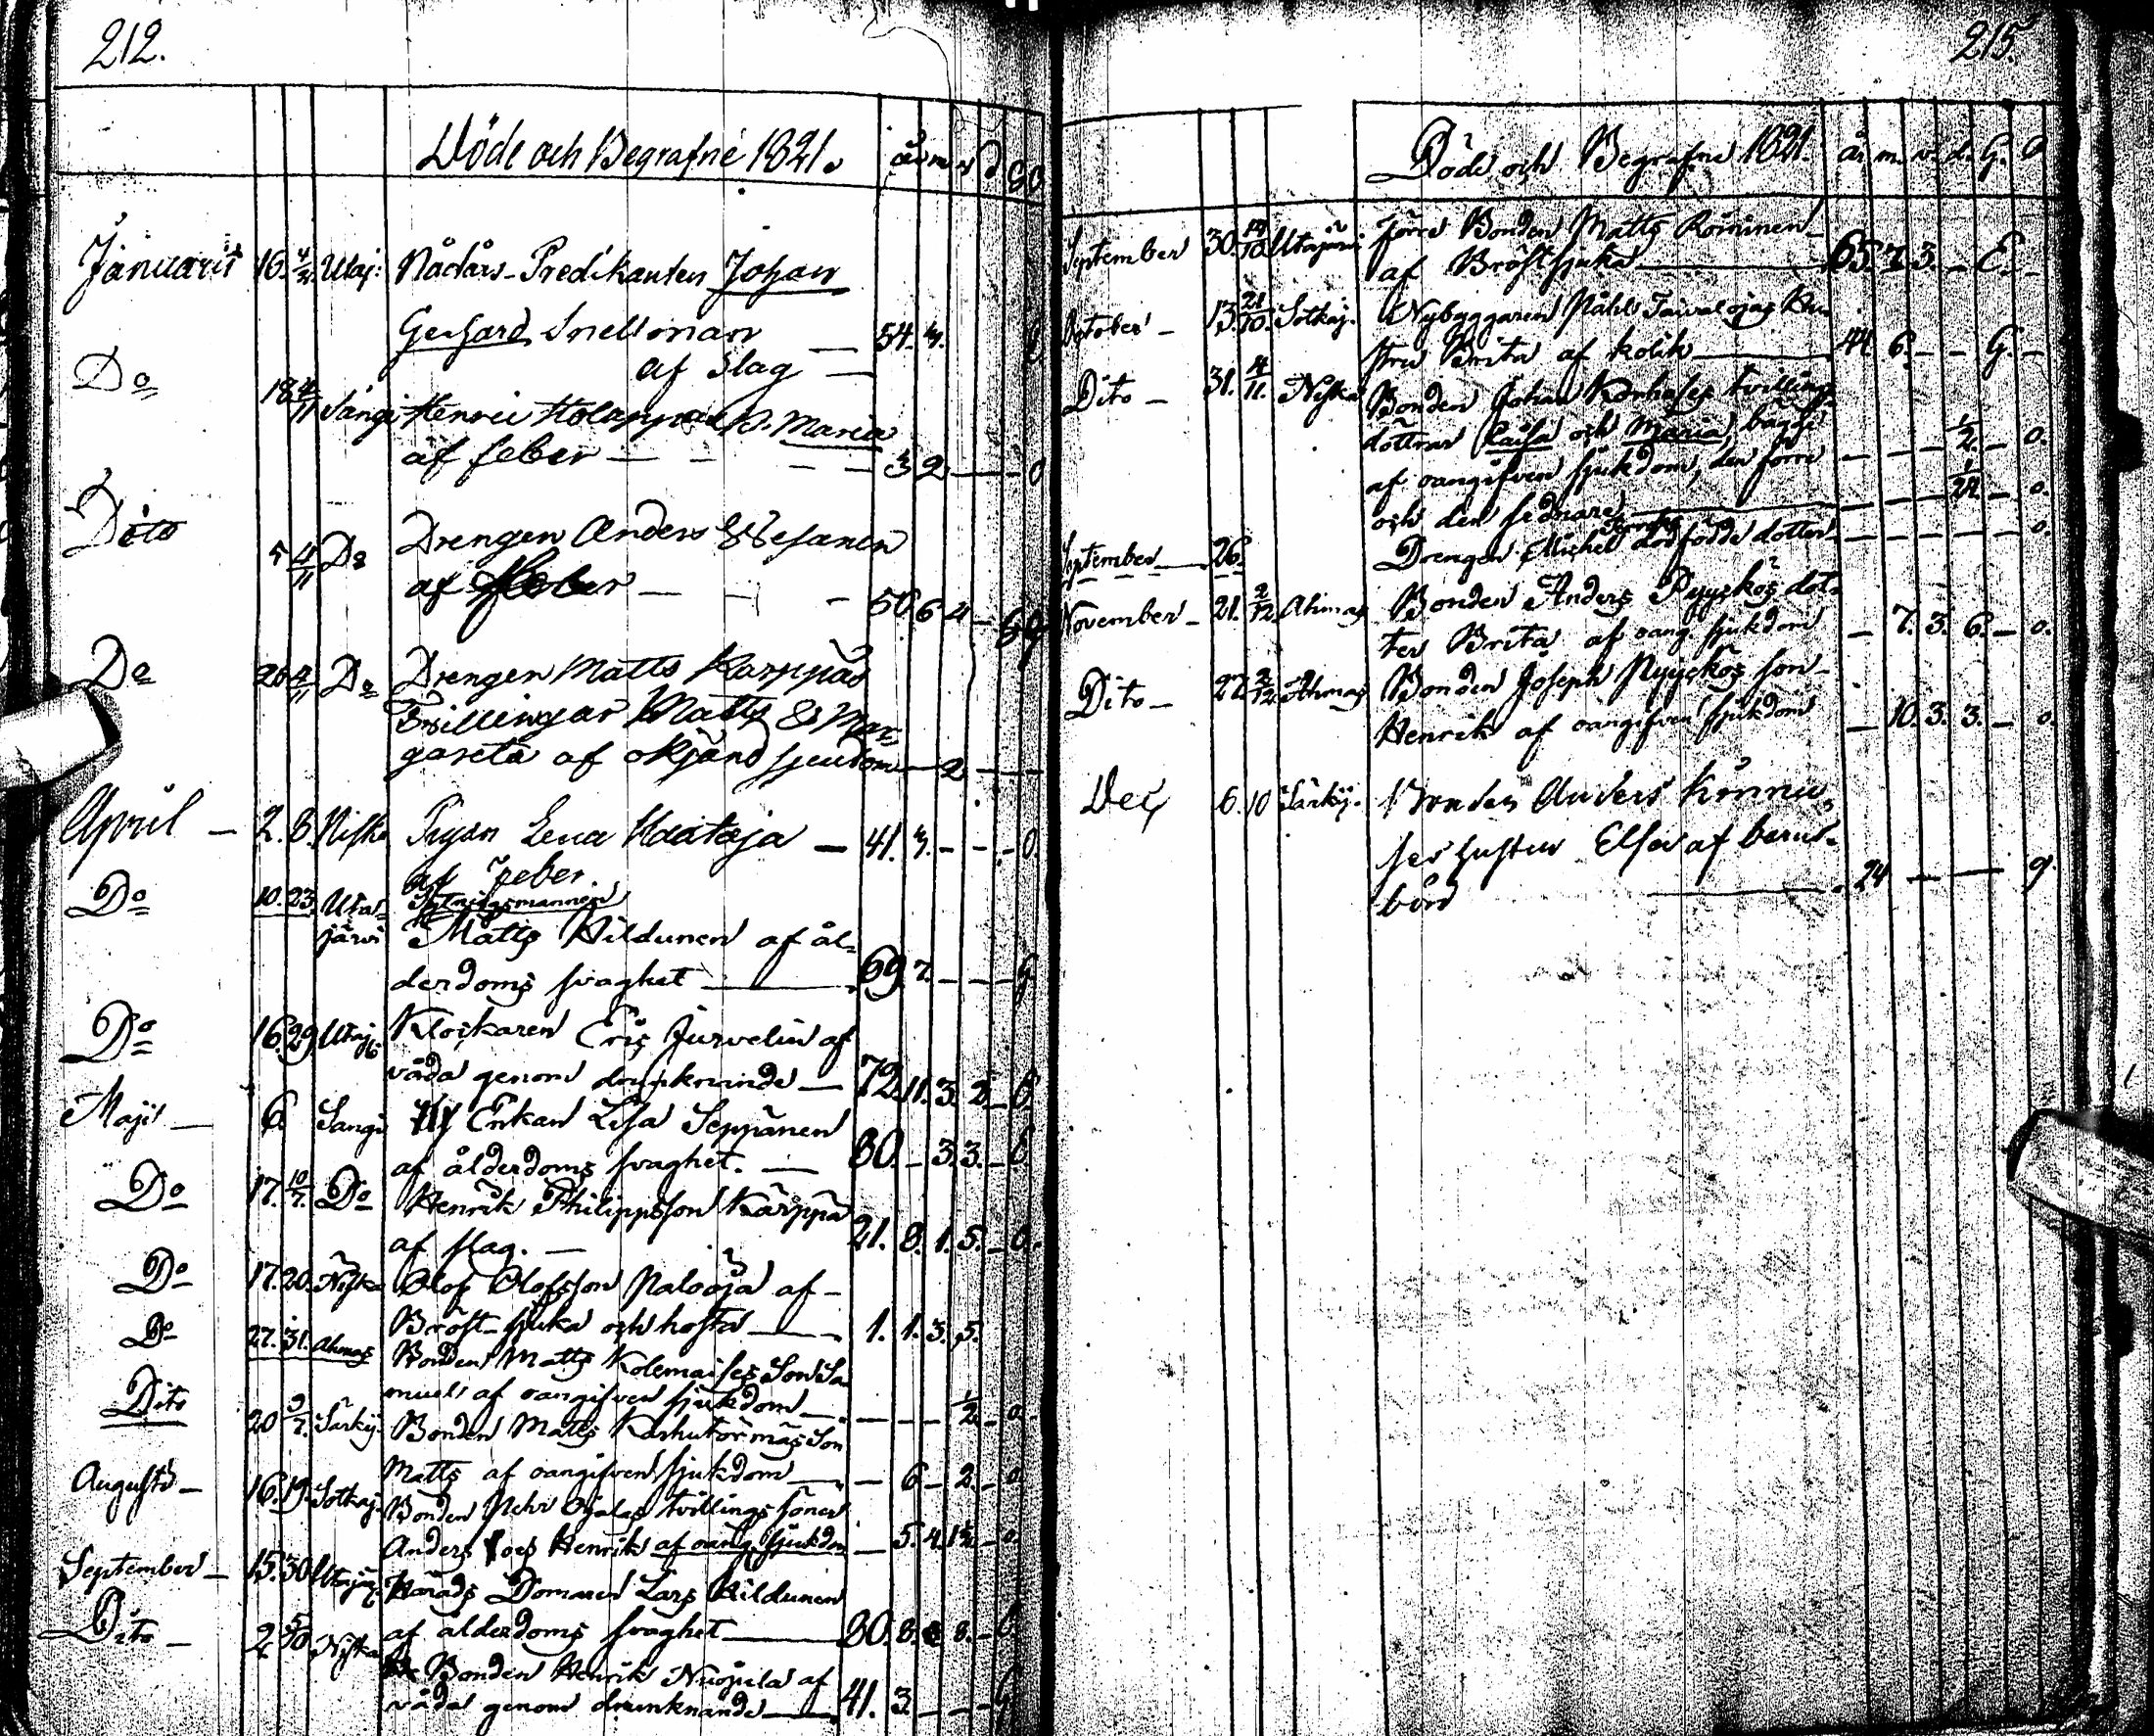 212.
Döde och Begrafne 1821. år m v d G O
Januarii 16. 4/2. Utaj: Nådårs-Predikanten Johan
Gerhard Snellman — 54. 3.
af Slag —
Do 18 Sangi Henric Holappas D. Maria
af feber — — — — 3 2 — — O
Dito 5 4/11 Do Drengen Anders Wesanen
af feber — — — 50 6 4 —
Do 26 Do Drengen Matts Karppas
Tvillingar Matts & Mar-
gareta af okjänd sjukdom — 2 — —
April — 2. 8. Niska Pigan Lena Haataja — 41. 3. - - - O.
af Feber.
Do 10. 23. Uta-
järvi Matts Hildunen af ål-
derdoms svaghet — 69. 7. — — — G.
Do 16. 29. Utaj: Klockaren Eric Jurvelin af
våda genom drunknande — 72. 11. 3. 2. — E.
Maji — 6. Sangi Enkan Lisa Seppänen
af ålderdoms svaghet. — 80. — 3. 3. — E.
Do 17. 10/7. Do Henrik Philippsson Kärppä
af slag. — 21. 8. 1. 5. — O.
Do 17. 20. Niska Olof Olofsson Nalooja af -
Bröst-sjuka och hosta — 1. 1. 3. 5.
Do 27. 31. Ahmas Bonden Matts Kolemaises Son Sa-
muel af oangifven sjukdom — — — — 1/2. — o.
Dito 20 3/7. Särkij. Bonden Matts Karhutörmäs Son
Matts af oangifven sjukdom — — 6 — 2. — o
Augusti — 16. 19. Sotkaj. Bonden Pehr Ojalas tvillings söner
Anders och Henrik af oang. sjukdom — 5. 4. 1 1/2 — o.
September — 15. 30 Utajär. Härads Domaren Lars Hildunen
af ålderdoms svaghet — 80. 8. 8. — E.
Dito — 2 5/10 Niska Bonden Henrik Nuojula af
våda genom drunknande — 41. 3. — — — G
215.
Döde och Begrafne 1821. år. m. v. d. G. O
September 30. 14/10 Utajärvi förre Bonden Matts Roininen -
af Bröstsjuka — 65. 7. 3. — E. -
October — 13. 21/10. Sotkaj. Nybyggaren Påhls Taivalojas Hu-
stru Brita af kolik — 44. 6. — — G. —
Dito — 31. 4/11. Niska Bonden Johan Korhoses tvillings
döttrar Caisa och Maria, bägge
af oangifven sjukdom, den förre — — — 1/2. — o.
och den sednare — — — — 1/24 — o.
September — 26. Drengen Michel dödfödde dotter — — — — — o.
November — 21. 2/12. Ahmas Bonden Anders Pyykkös dot-
ter Brita af oang. sjukdom — 7. 3. 6. — o.
Dito — 22. 2/12. Ahmas Bonden Joseph Pyykkös son
Henrik af oangifven sjukdom — 10. 3. 3. — o.
Dec 6. 10 Särkij. Bonden Anders Könnü-
ses hustru Elsa af barns-
börd — 24 — — g.